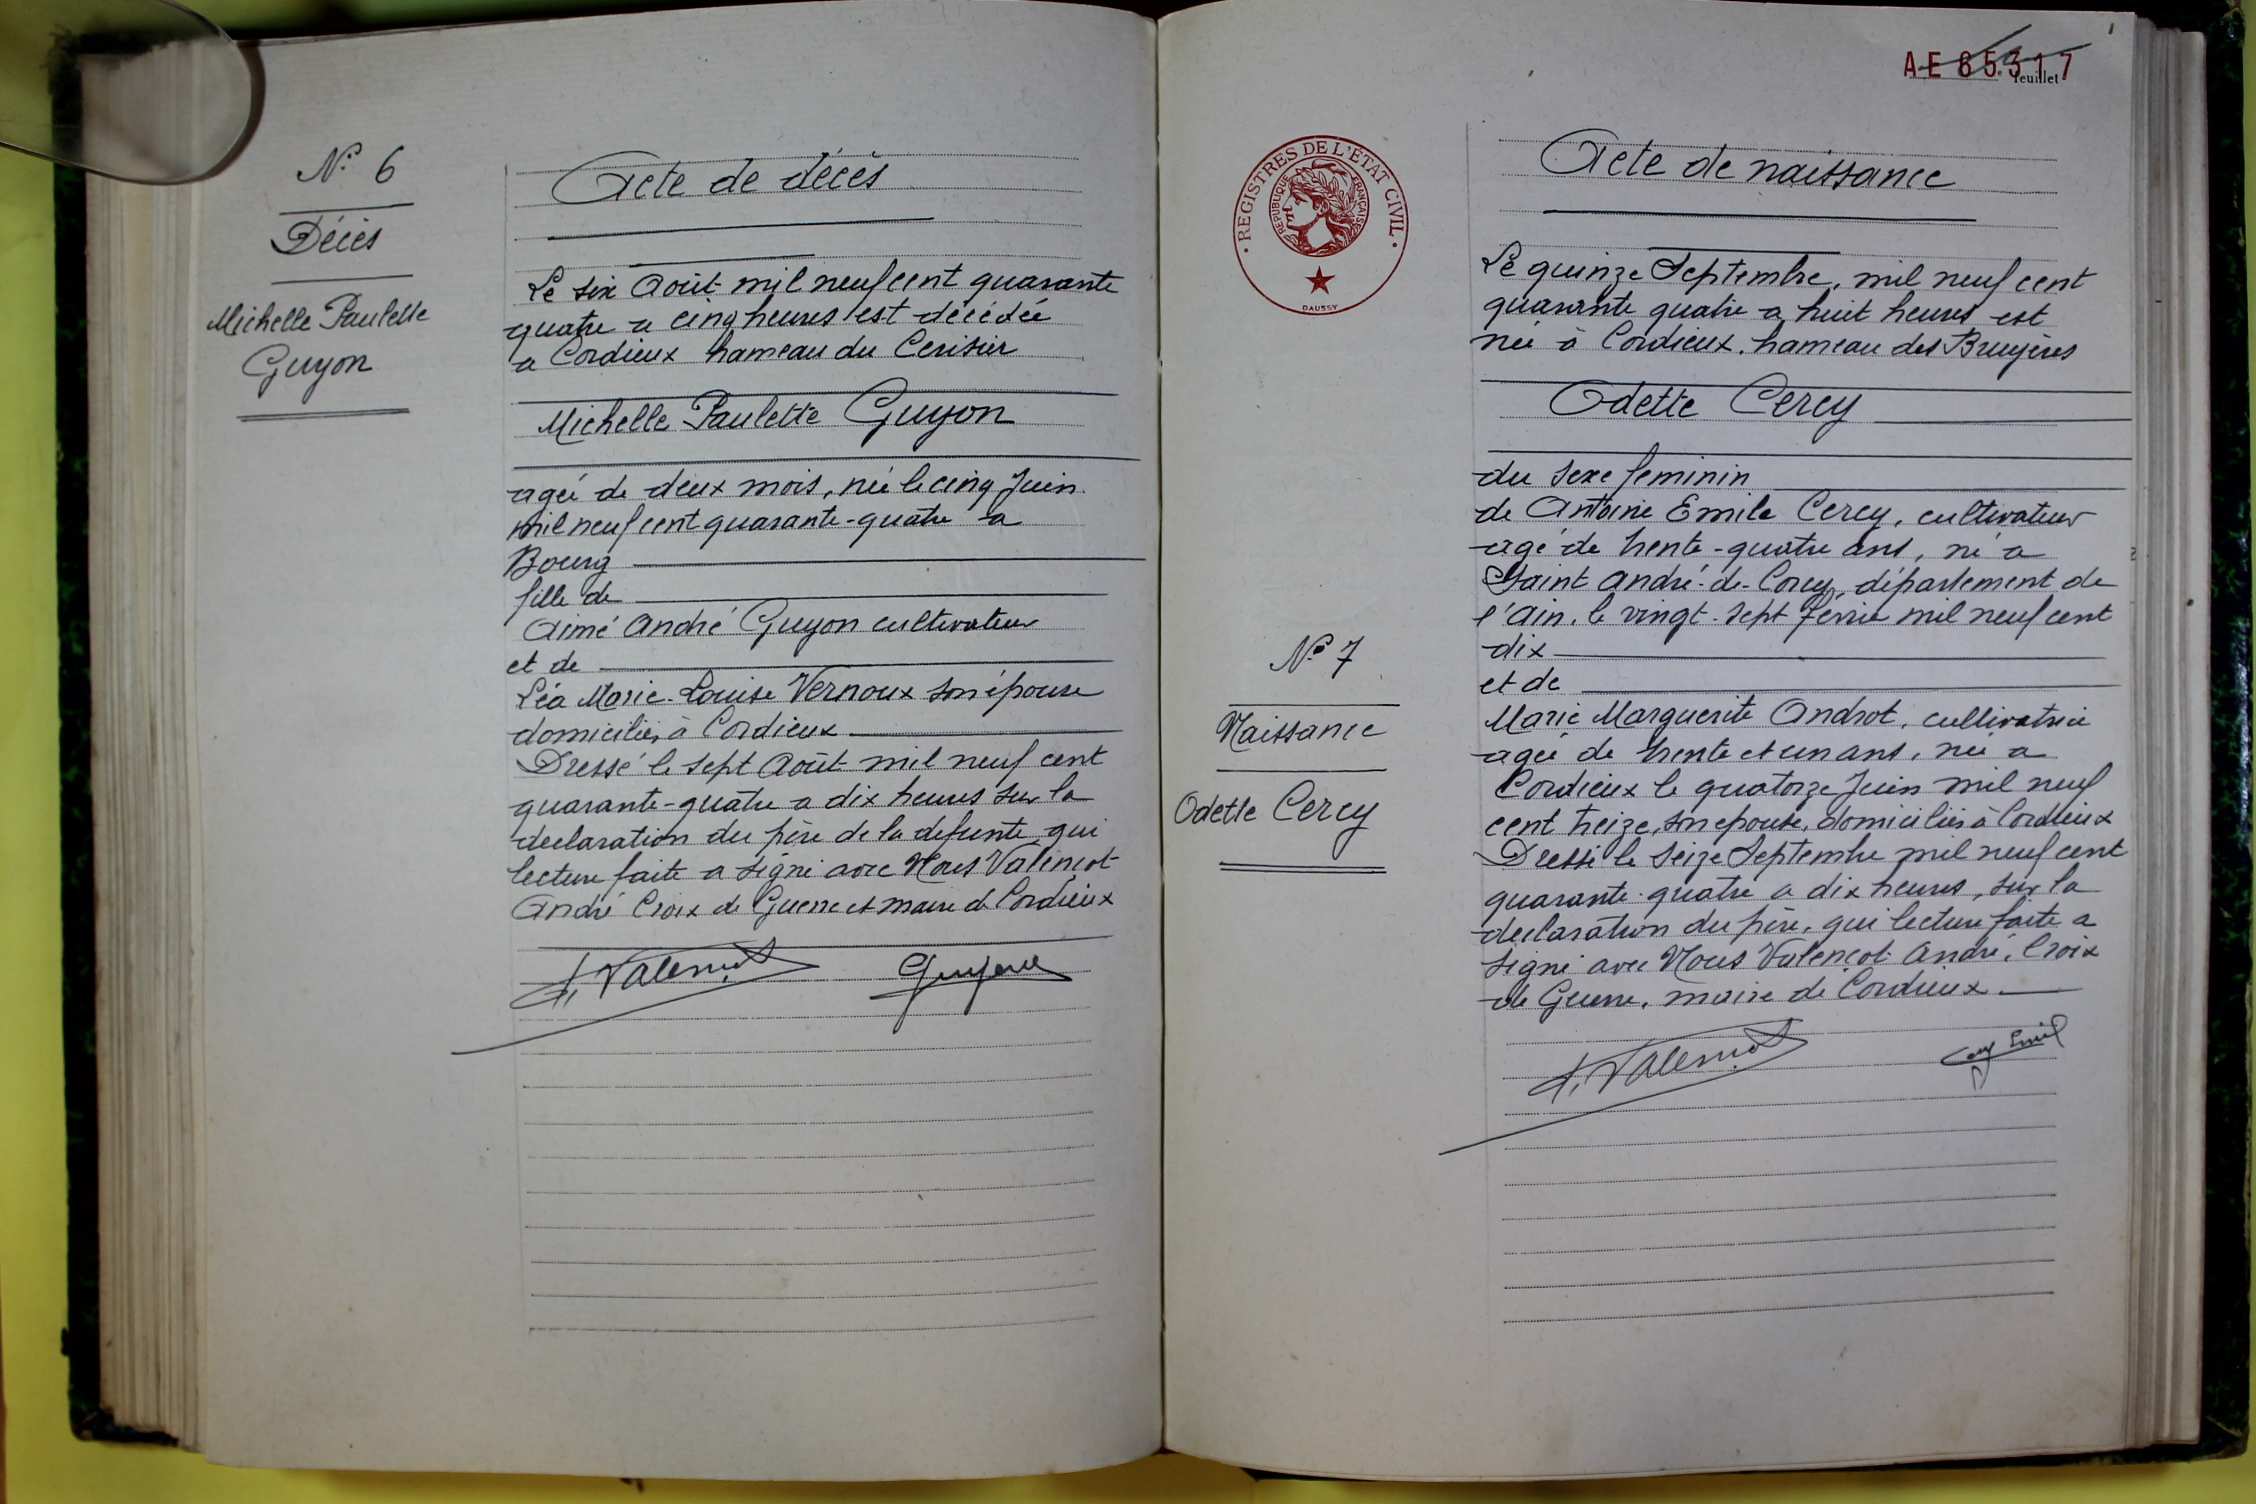 N° 6
Décès
Michelle Paulette
Guyon
Acte de décès
Le six Août mil neuf cent quarante
quatre a cinq heures est décédée
a Cordieux hameau du Cerisier
Michelle Paulette Guyon
agée de deux mois, née le cinq Juin
mil neuf cent quarante-quatre a
Bourg
fille de
Aimé André Guyon cultivateur
et de
Léa Marie-Louise Vernoux son épouse
domiciliés à Cordieux
Dressé le sept Août mil neuf cent
quarante-quatre a dix heures sur la
declaration du père de la defunte qui
lecture faite a signé avec Nous Valençot
André Croix de Guerre et maire de Cordieux
A. Valençot
AE 65317
feuillet
REGISTRES DE L'ÉTAT CIVIL
RÉPUBLIQUE FRANÇAISE
DAUSSY
Acte de naissance
Le quinze Septembre, mil neuf cent
quarante quatre a huit heures est
née à Cordieux, hameau des Bruyères
Odette Cercy
du sexe feminin
de Antoine Emile Cercy, cultivateur
agé de trente-quatre ans, né a
Saint André-de-Corcy, département de
l'Ain, le vingt-sept février mil neuf cent
dix
et de
Marie Marguerite Androt, cultivatrice
agée de trente et un ans, née a
Cordieux le quatorze Juin mil neuf
cent treize, son epouse, domiciliés à Cordieux
Dressé le seize Septembre mil neuf cent
quarante-quatre a dix heures, sur la
declaration du père, qui lecture faite a
signé avec Nous Valençot André, Croix
de Guerre, maire de Cordieux
A. Valençot
N° 7
Naissance
Odette Cercy